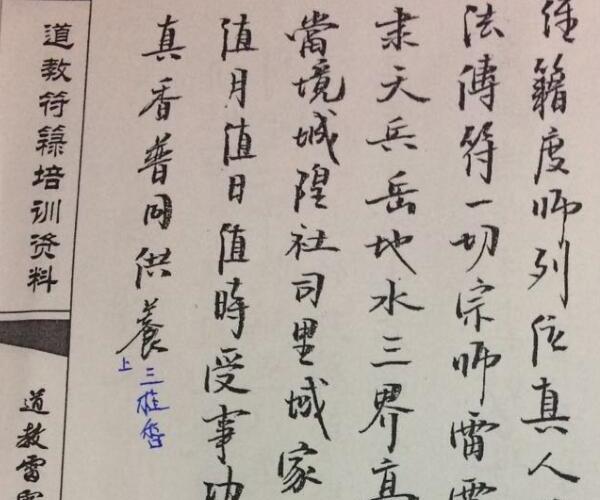 經籍度師列位真人
法傳符一切宗師雷霆
隶天兵岳地水三界真
當境城隍社司里域家
值月值日值時受事功
真香普同供養
上三炷香
道教符籙培训资料
道教雷